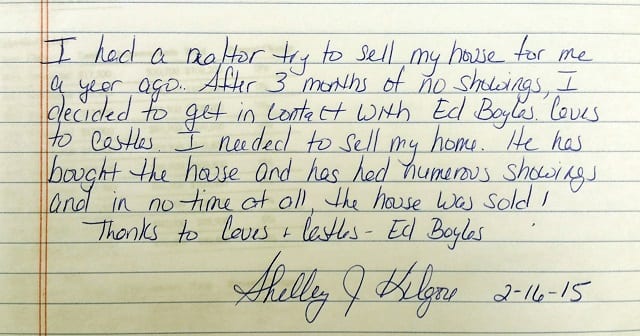 I had a realtor try to sell my house for me
a year ago.. After 3 months of no showings, I
decided to get in contact with Ed Boyles. Caves
to Castles. I needed to sell my home. He has
bought the house and has had numerous showings
and in no time at all, the house was sold!
Thanks to Caves & Castles - Ed Boyles
Shelley J Kilgore 2-16-15